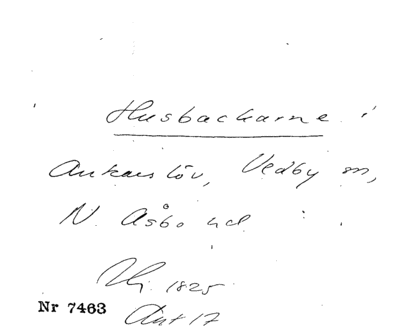 Husbackarne
Ankarslöv, Vedby sn,
N. Åsbo hd
1825
Nr 7463
Akt 17